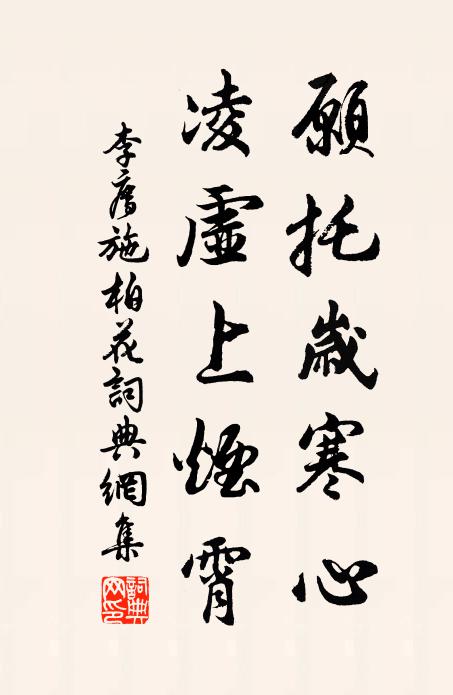 願托歲寒心
凌虛上煙霄
李廌施柏花詞典網集
詞典
网印